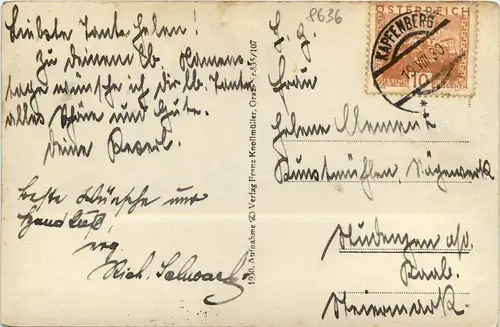 Liebste Tante Helen!
Zu deinem lb. Namens
tage wünsche ich dir lb. Tante
alles Schöne und Gute.
Deine
Beste Wünsche und
Handkuß,
erg.
Rich. Schwarz
1930. Aufnahme Verlag Franz Knollmüller, Graz Nr. 835/107
8636
ÖSTERREICH
KAPFENBERG
10
GROSCHEN
Frau
Helene Clement
Kunstmühlen, Sägewerk
Studenzen a/d.
Raab.
Steiermark.